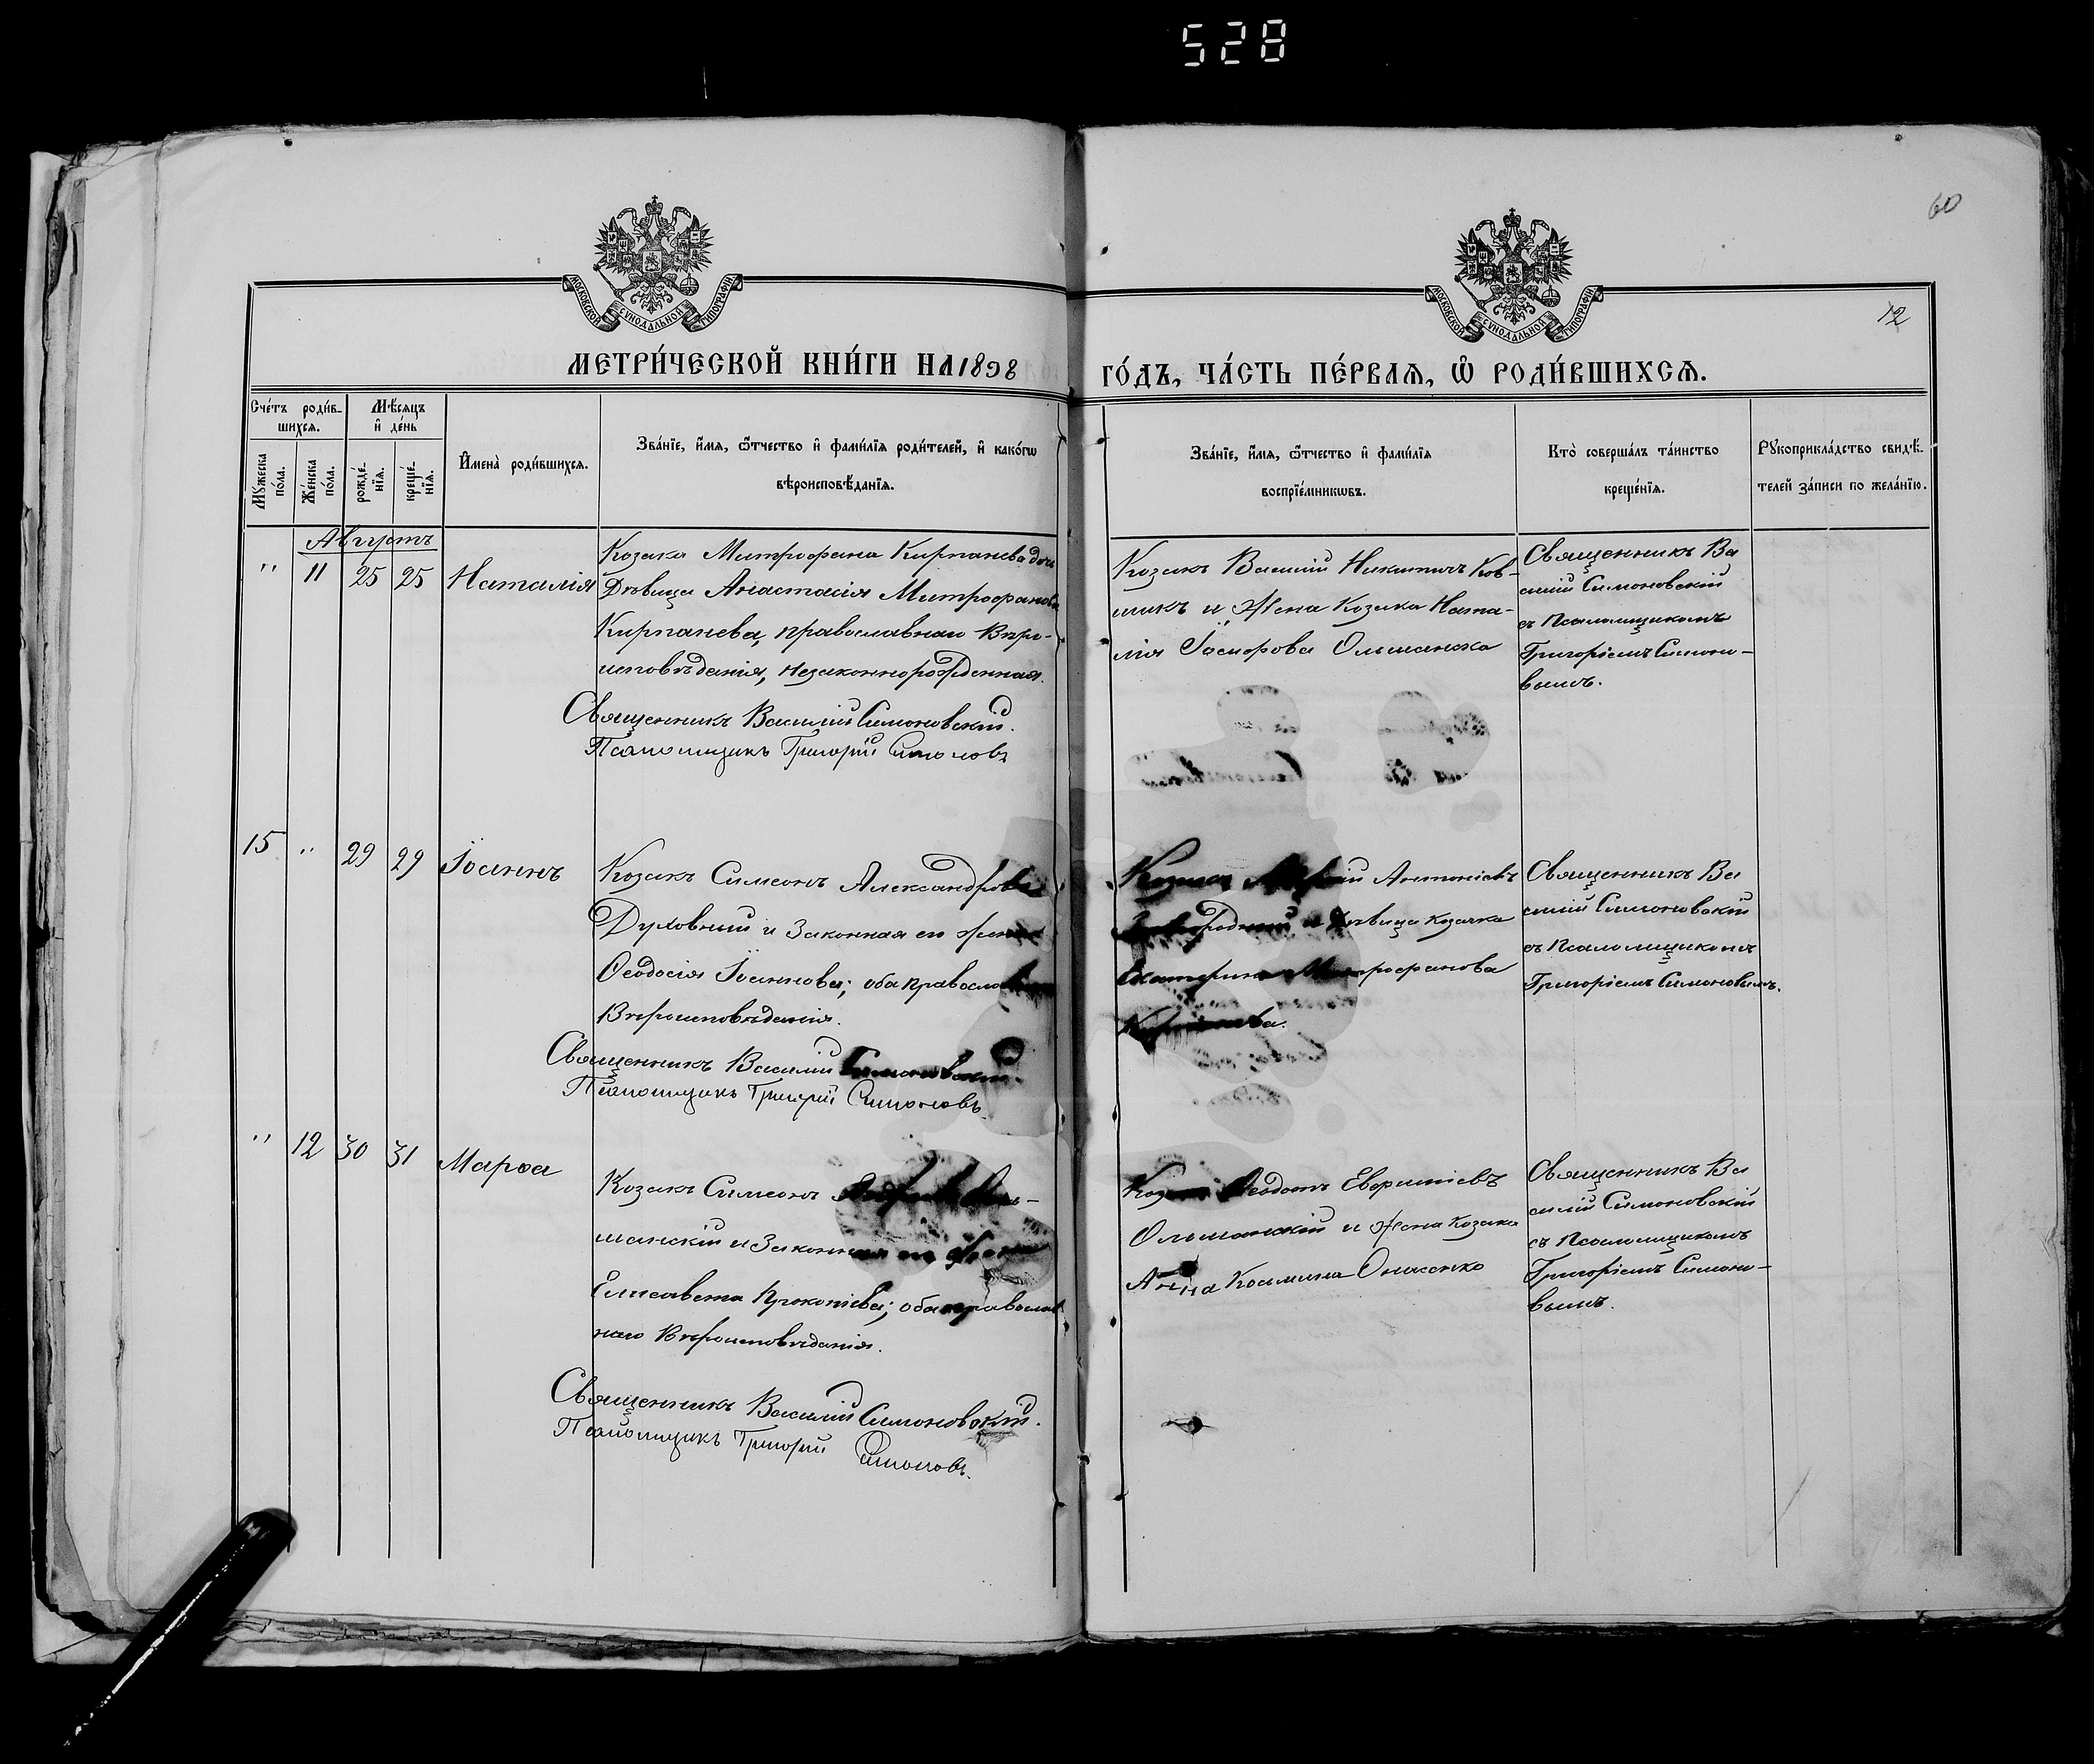 528
60
12
МОСКОВСКОЙ СУНОДАЛЬНОЙ ТИПОГРАФІИ
МОСКОВСКОЙ СУНОДАЛЬНОЙ ТИПОГРАФІИ
МЕТРИ́ЧЕСКОЙ КНИ́ГИ НА 1898
ГО́ДЪ, ЧА́СТЬ ПЕ́РВАѦ, Ѡ҆ РОДИ́ВШИХСѦ.
Сче́тъ роди́в-
шихсѧ.
Мѣ́сѧцъ
и҆ де́нь
Мꙋ́жеска по́ла.
Же́нска по́ла.
рожде́-
нїѧ.
креще́-
нїѧ.
И҆мена̀ роди́вшихсѧ.
Зва́нїе, и҆́мѧ, ѻ҆́тчество и҆ фами́лїѧ роди́телей, и҆ како́гѡ
вѣроисповѣ́данїѧ.
Зва́нїе, и҆́мѧ, ѻ҆́тчество и҆ фами́лїѧ
воспрїе́мникѡвъ.
Кто̀ соверша́лъ та́инство
креще́нїѧ.
Рꙋкоприкла́дство свидѣ́-
телей за́писи по жела́нїю.
Августъ
" 11 25 25 Наталія
Козака Митрофана Кирпанева дочь
Дѣвица Анастасія Митрофанова
Кирпанева, православнаго Вѣро-
исповѣданія, незаконнорожденная.
Священникъ Василій Симоновскій.
Псаломщикъ Григорій Симоновъ
Козакъ Василій Никитичъ Ков-
шикъ и Жена Козака Ната-
лія Ольшанска
Священникъ Ва
силій Симоновскій
съ Псаломщикомъ
Григоріемъ Симоно-
вымъ.
15 " 29 29 Іоаннъ
Козакъ Симеонъ Александровъ
Духовный и Законная его жена
Ѳеодосія Іоаннова; оба православнаго
Вѣроисповѣданія.
Священникъ Василій Симоновскій.
Псаломщикъ Григорій Симоновъ
Козакъ Антоніевъ
и Дѣвица козачка
Екатерина Митрофанова
Кирпанева.
Священникъ Ва
силій Симоновскій
съ Псаломщикомъ
Григоріемъ Симоновымъ.
" 12 30 31 Марѳа
Козакъ Симеонъ Оль-
шанскій и Законная его Жена
Елисавета Прокопіева; оба православ
наго Вѣроисповѣданія.
Священникъ Василій Симоновскій.
Псаломщикъ Григорій
Симоновъ.
Козакъ Ѳеодотъ Евфиміевъ
Ольшанскій и Жена Козака
Анна Косьмина Онасенко
Священникъ Ва
силій Симоновскій
съ Псаломщикомъ
Григоріемъ Симоно-
вымъ.